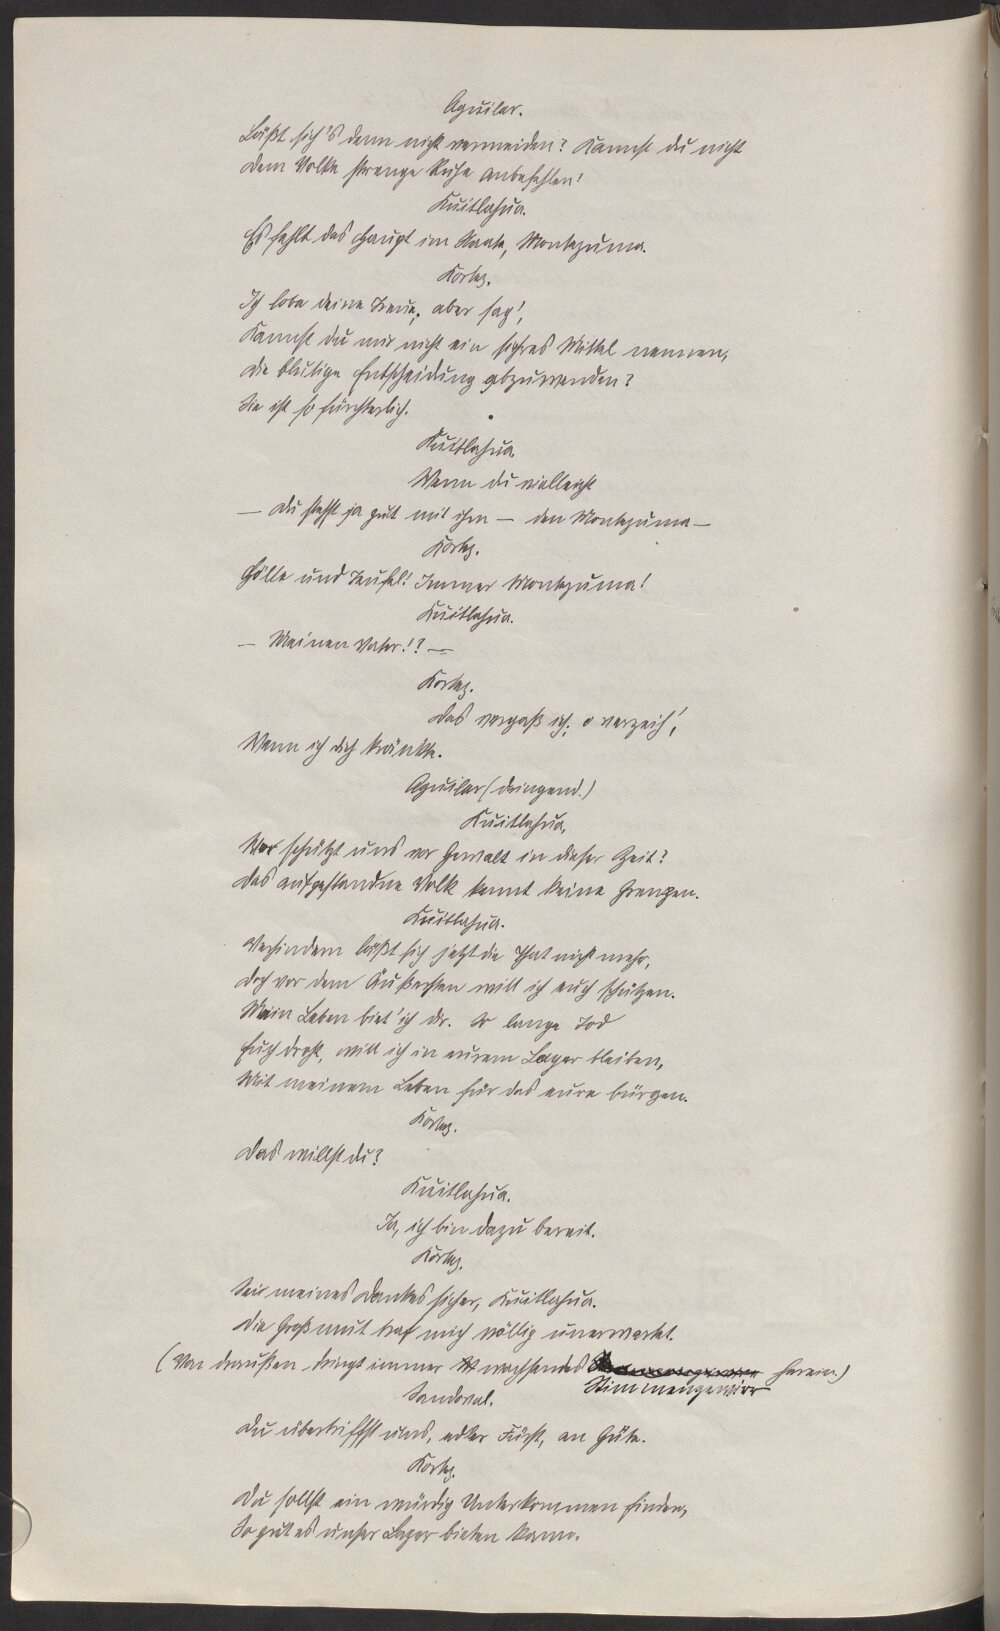 Aguilar.
Läßt sich's denn nicht vermeiden? Kannst du nicht
Dem Volke strenge Ruhe anbefehlen!
Kuitlahua.
Es fehlt das Haupt im Staate, Montezuma.
Kortez.
Ich lobe deine Treue; aber sag',
Kannst du mir nicht ein sichres Mittel nennen,
Die blutige Entscheidung abzuwenden?
Sie ist so fürchterlich.
Kuitlahua.
Wenn du vielleicht
— Du stehst ja gutt mit ihm — den Montezuma —
Kortez.
Hölle und Teufel! Immer Montezuma!
Kuitlahua.
— Meinen Vater!? —
Kortez.
Das vergaß ich; o verzeih',
Wenn ich dich kränkte.
Aguilar (dringend.)
Kuitlahua,
Wer schützt uns vor Gewalt in dieser Zeit?
Das aufgestandne Volk kennt keine Grenzen.
Kuitlahua.
Verhindern läßt sich jetzt die That nicht mehr,
Doch vor dem Äußersten will ich euch schützen.
Mein Leben biet' ich dir. So lange Tod
Euch droht, will ich in eurem Lager bleiben,
Mit meinem Leben für das eure bürgen.
Kortez.
Das willst du?
Kuitlahua.
Ja, ich bin dazu bereit.
Kortez.
Sei meines Dankes sicher, Kuitlahua.
Die Großmut traf mich völlig unerwartet.
(Von draußen dringt immer wachsendes herein.)
Stimmengewirr
Sandoval.
Du übertriffst uns, edler Fürst, an Güte.
Kortez.
Du sollst ein würdig Unterkommen finden,
So gut es unser Lager bieten kann.